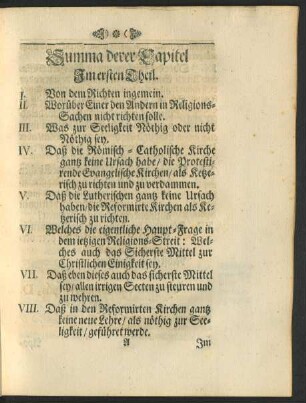 Summa derer Capitel
Im ersten Theil.
I. Von dem Richten ingemein.
II. Worüber Einer den Andern in Religions-
Sachen nicht richten solle.
III. Was zur Seeligkeit Nöthig oder nicht
Nöthig sey.
IV. Daß die Römisch-Catholische Kirche
gantz keine Ursach habe / die Protesti-
rende Evangelische Kirchen / als Ketze-
risch zu richten und zu verdammen.
V. Daß die Lutherischen gantz keine Ursach
haben / die Reformirte Kirchen als Ke-
tzerisch zu richten.
VI. Welches die eigentliche Haupt-Frage in
dem ietzigen Religions-Streit: Wel-
ches auch das Sicherste Mittel zur
Christlichen Einigkeit sey.
VII. Daß eben dieses auch das sicherste Mittel
sey / allen irrigen Secten zu steuren und
zu wehren.
VIII. Daß in den Reformirten Kirchen gantz
keine neue Lehre / als nöthig zur See-
ligkeit / geführet werde.
A Im